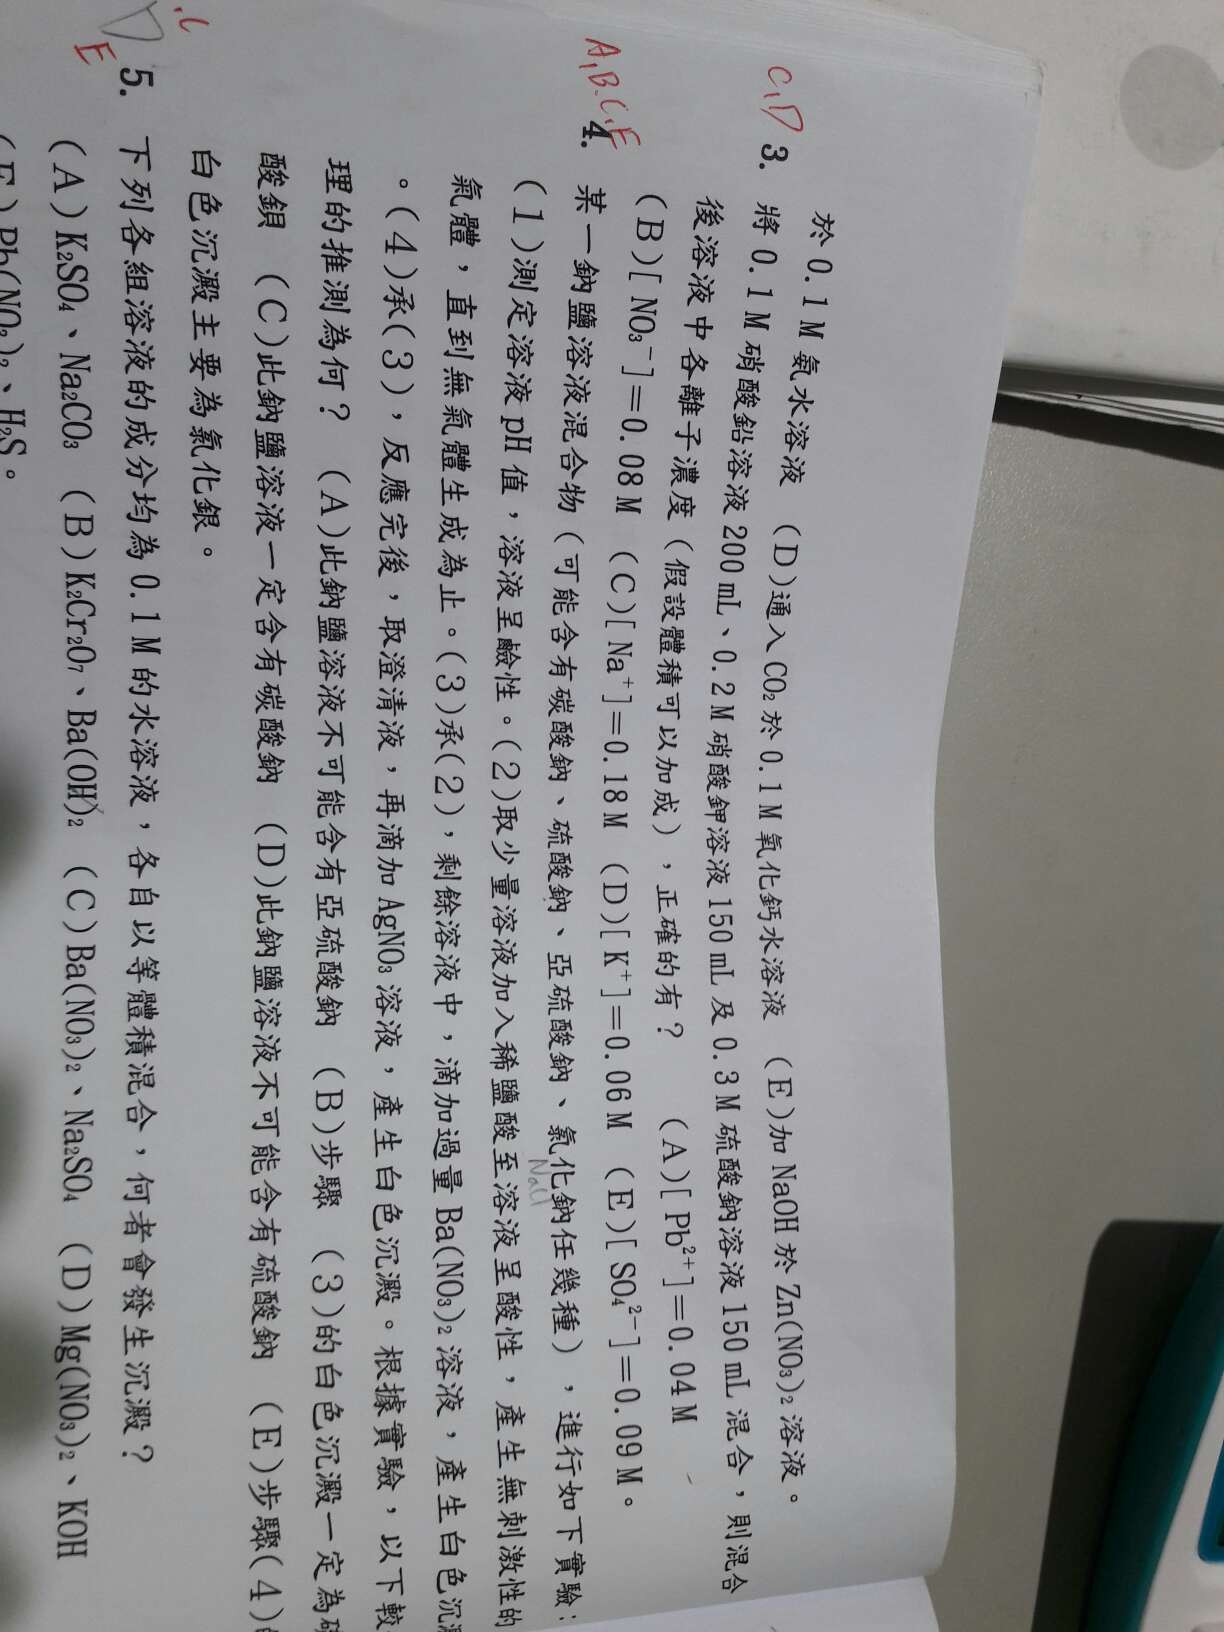 於 0.1 M 氨水溶液 (D)通入 CO₂ 於 0.1 M 氧化鈣水溶液 (E)加 NaOH 於 Zn(NO₃)₂ 溶液。
C,D 3. 將 0.1 M 硝酸鉛溶液 200 mL、0.2 M 硝酸鉀溶液 150 mL 及 0.3 M 硫酸鈉溶液 150 mL 混合，則混合
後溶液中各離子濃度（假設體積可以加成），正確的有？ (A)[Pb²⁺]=0.04 M
(B)[NO₃⁻]=0.08 M (C)[Na⁺]=0.18 M (D)[K⁺]=0.06 M (E)[SO₄²⁻]=0.09 M。
A,B,C,E 4. 某一鈉鹽溶液混合物（可能含有碳酸鈉、硫酸鈉、亞硫酸鈉、氯化鈉任幾種），進行如下實驗：
NaCl
(1)測定溶液 pH 值，溶液呈鹼性。(2)取少量溶液加入稀鹽酸至溶液呈酸性，產生無刺激性的
氣體，直到無氣體生成為止。(3)承(2)，剩餘溶液中，滴加過量 Ba(NO₃)₂ 溶液，產生白色沉
。(4)承(3)，反應完後，取澄清液，再滴加 AgNO₃ 溶液，產生白色沉澱。根據實驗，以下較
理的推測為何？ (A)此鈉鹽溶液不可能含有亞硫酸鈉 (B)步驟 (3)的白色沉澱一定為
酸鋇 (C)此鈉鹽溶液一定含有碳酸鈉 (D)此鈉鹽溶液不可能含有硫酸鈉 (E)步驟(4)
白色沉澱主要為氯化銀。
5. 下列各組溶液的成分均為 0.1 M 的水溶液，各自以等體積混合，何者會發生沉澱？
(A)K₂SO₄、Na₂CO₃ (B)K₂Cr₂O₇、Ba(OH)₂ (C)Ba(NO₃)₂、Na₂SO₄ (D)Mg(NO₃)₂、KOH
(E)Pb(NO₃)₂、H₂S。